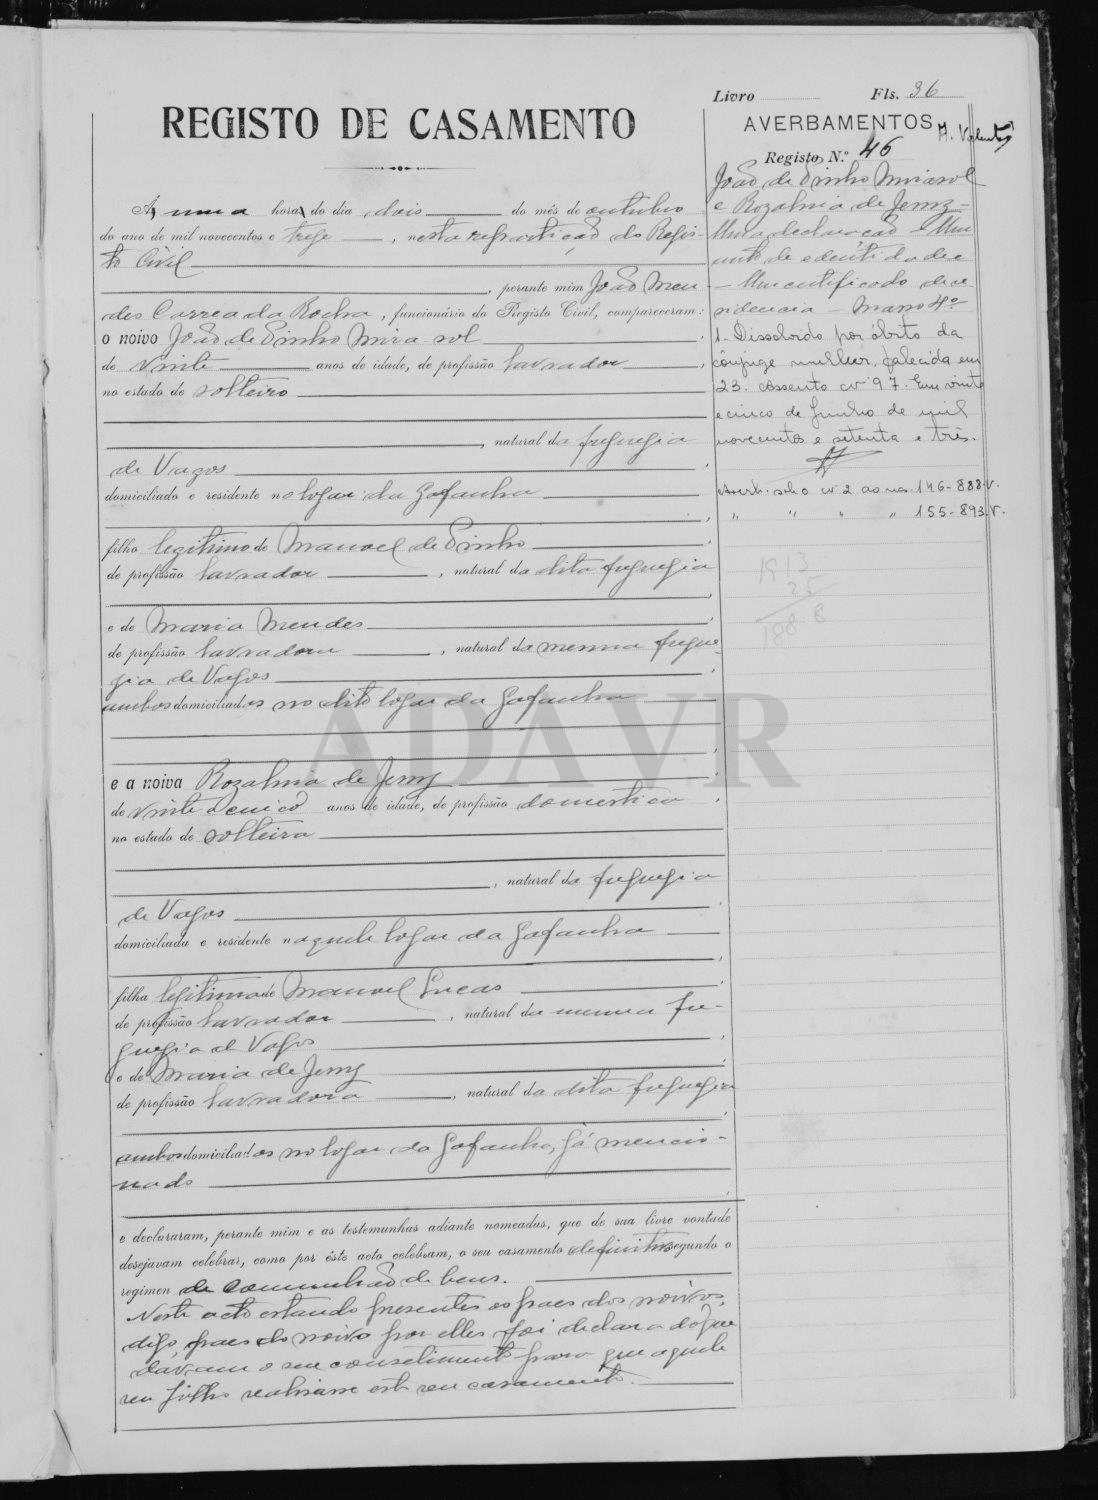 Livro Fls. 36
REGISTO DE CASAMENTO
AVERBAMENTOS
Registo N.º 46
João de Pinho Mirasol
e Rozalina de Jesus
Uma declaração
1. Dissolvido por óbito da
cônjuge mulher, falecida em
23. Assento nº 97. Em vinte
e cinco de Junho de mil
novecentos e setenta e três.
Averb. sob o nº 2 ao nas. 146-888-V.
" " " " 155-893.V.
1913
25
1888
Á uma hora do dia dois do mês de outubro
do ano de mil novecentos e treze, nesta repartição do Regis-
to Civil
, perante mim João Men-
des Correa da Rocha, funcionário do Registo Civil, compareceram:
o noivo João de Pinho Mira-sol
de vinte anos de idade, de profissão lavrador,
no estado de solteiro
, natural da freguezia
de Vagos
domiciliado e residente no logar da Gafanha
filho legitimo de Manoel de Pinho
de profissão lavrador, natural da dita freguezia
e de Maria Mendes
de profissão lavradora, natural da mesma fregue-
zia de Vagos
ambos domiciliados no dito logar da Gafanha
ADAVR
e a noiva Rozalina de Jesus
de vinte e cinco anos de idade, de profissão domestica,
no estado de solteira
, natural da freguezia
de Vagos
domiciliada e residente naquele logar da Gafanha
filha legitima de Manoel Lucas
de profissão lavrador, natural da mesma fre-
guezia de Vagos
e de Maria de Jesus
de profissão lavradora, natural da dita freguezia
ambos domiciliados no logar da Gafanha, já mencio-
nado
e declararam, perante mim e as testemunhas adiante nomeadas, que de sua livre vontade
desejavam celebrar, como por êste acto celebram, o seu casamento definitivo segundo o
regimen de comunhão de bens.
Neste acto estando presentes os paes dos noivos,
digo, paes do noivo por elles foi declarado que
davam o seu consentimento para que aquele
seu filho realisasse este seu casamento.